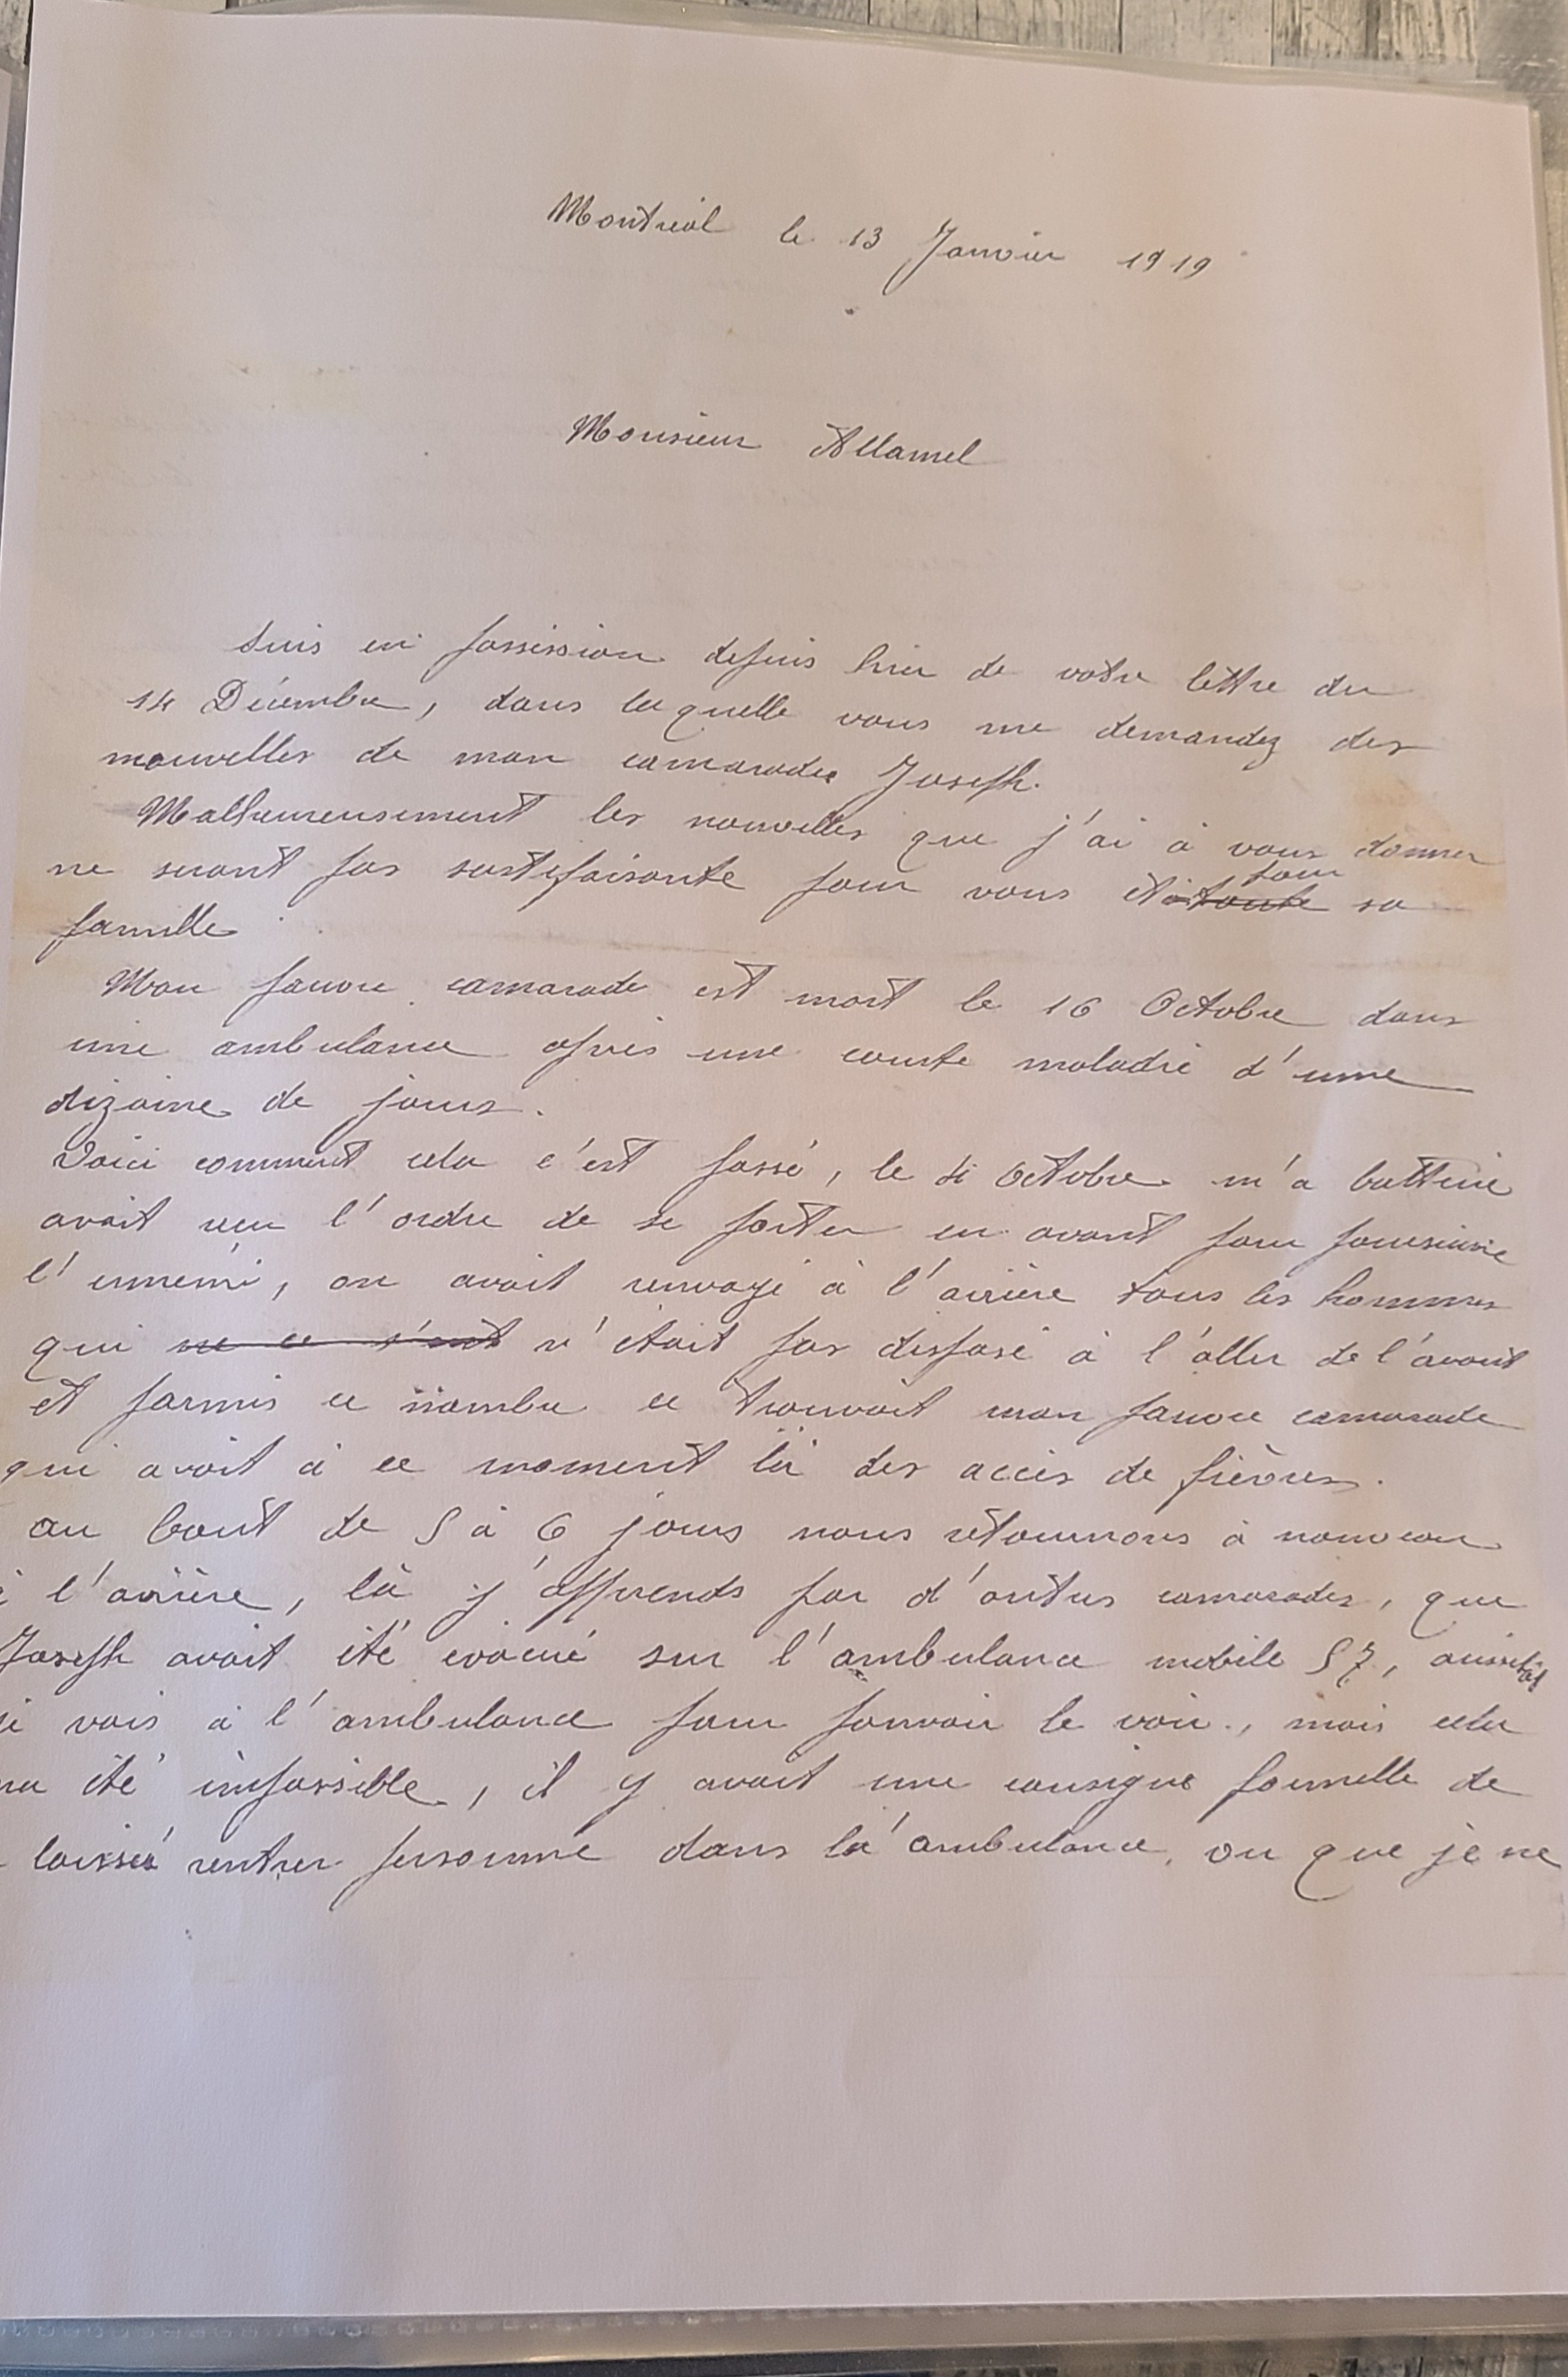 Montreal le 13 Janvier 1919
Monsieur Allamel
Suis en possession depuis hier de votre lettre du
14 Décembre, dans laquelle vous me demandez des
nouvelles de mon camarade Joseph.
Malheureusement les nouvelles que j'ai à vous donner
ne seront pas sastifaisante pour vous et pour sa
famille
Mon pauvre camarade est mort le 16 Octobre dans
une ambulance après une courte maladie d'une
dizaine de jours.
Voici comment cela c'est passé, le 4 Octobre m'a batterie
avait reçu l'ordre de se porter en avant pour poursuivre
l'ennemi, on avait renvoyé à l'arrière tous les hommes
qui n'était pas disposé à l'aller de l'avant
et parmis ce nombre ce trouvait mon pauvre camarade
qui avait à ce moment là des accès de fièvres.
au bout de 5 à 6 jours nous retournons à nouveau
à l'arrière, là j'apprends par d'autres camarades, que
Joseph avait été évacué sur l'ambulance mobile 57, aussitôt
je vais à l'ambulance pour pouvoir le voir, mais cela
ma été impossible, il y avait une consigne formelle de
laissé rentrer personne dans la ambulance, ou que je ne